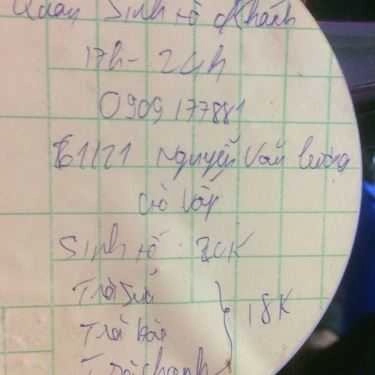 Quán Sinh tố Khánh
17h - 24h
0909 177881
61/21 Nguyễn Văn Lượng
Gò Vấp
Sinh tố 20K
Trà Sữa
18K
Trà Đào
Trà chanh